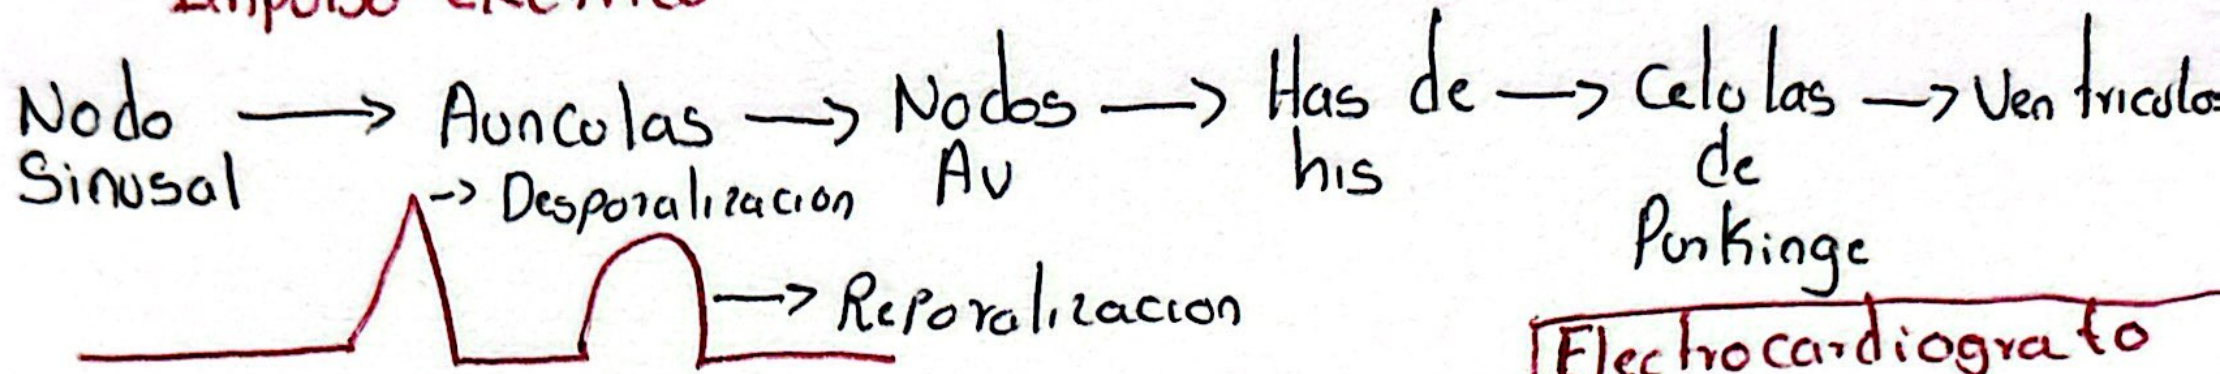 Impulso electrico
Nodo Sinusal → Auriculas → Nodos Av → Has de his → Celulas de Purkinge → Ventriculos
-> Desporalizacion
→ Reporalizacion
Electrocardiografo